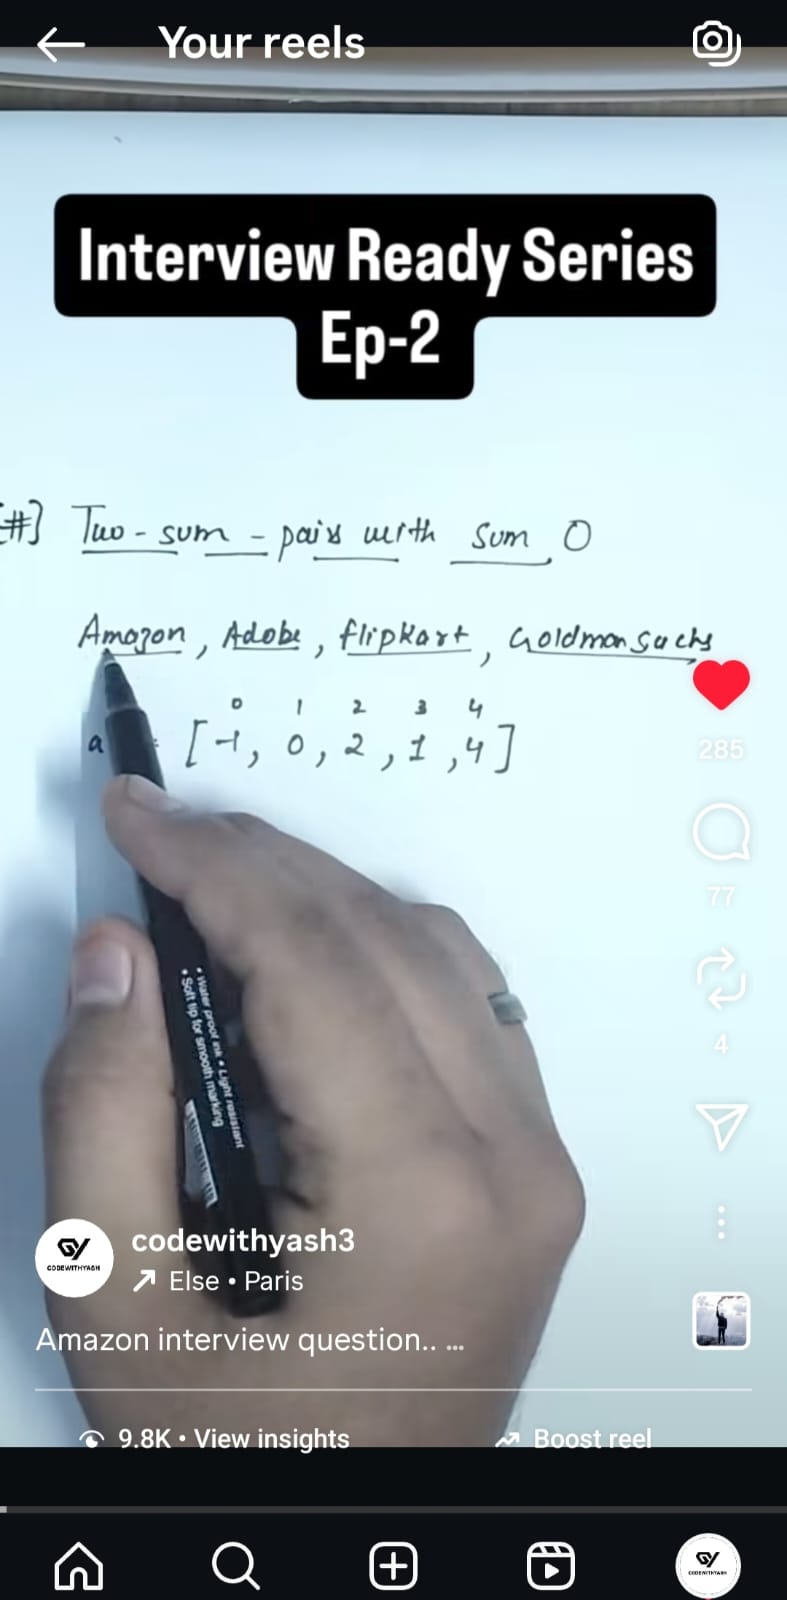 Your reels
Interview Ready Series
Ep-2
[#] Two-sum - pairs with sum 0
Amazon, Adobe, flipkart, Goldman Sachs
0 1 2 3 4
a = [-1, 0, 2, 1, 4]
285
77
4
• Water proof ink • Light resistant
• Soft tip for smooth marking
codewithyash3
CODEWITHYASH
Else • Paris
Amazon interview question.. ...
9.8K • View insights
Boost reel
CODEWITHYASH